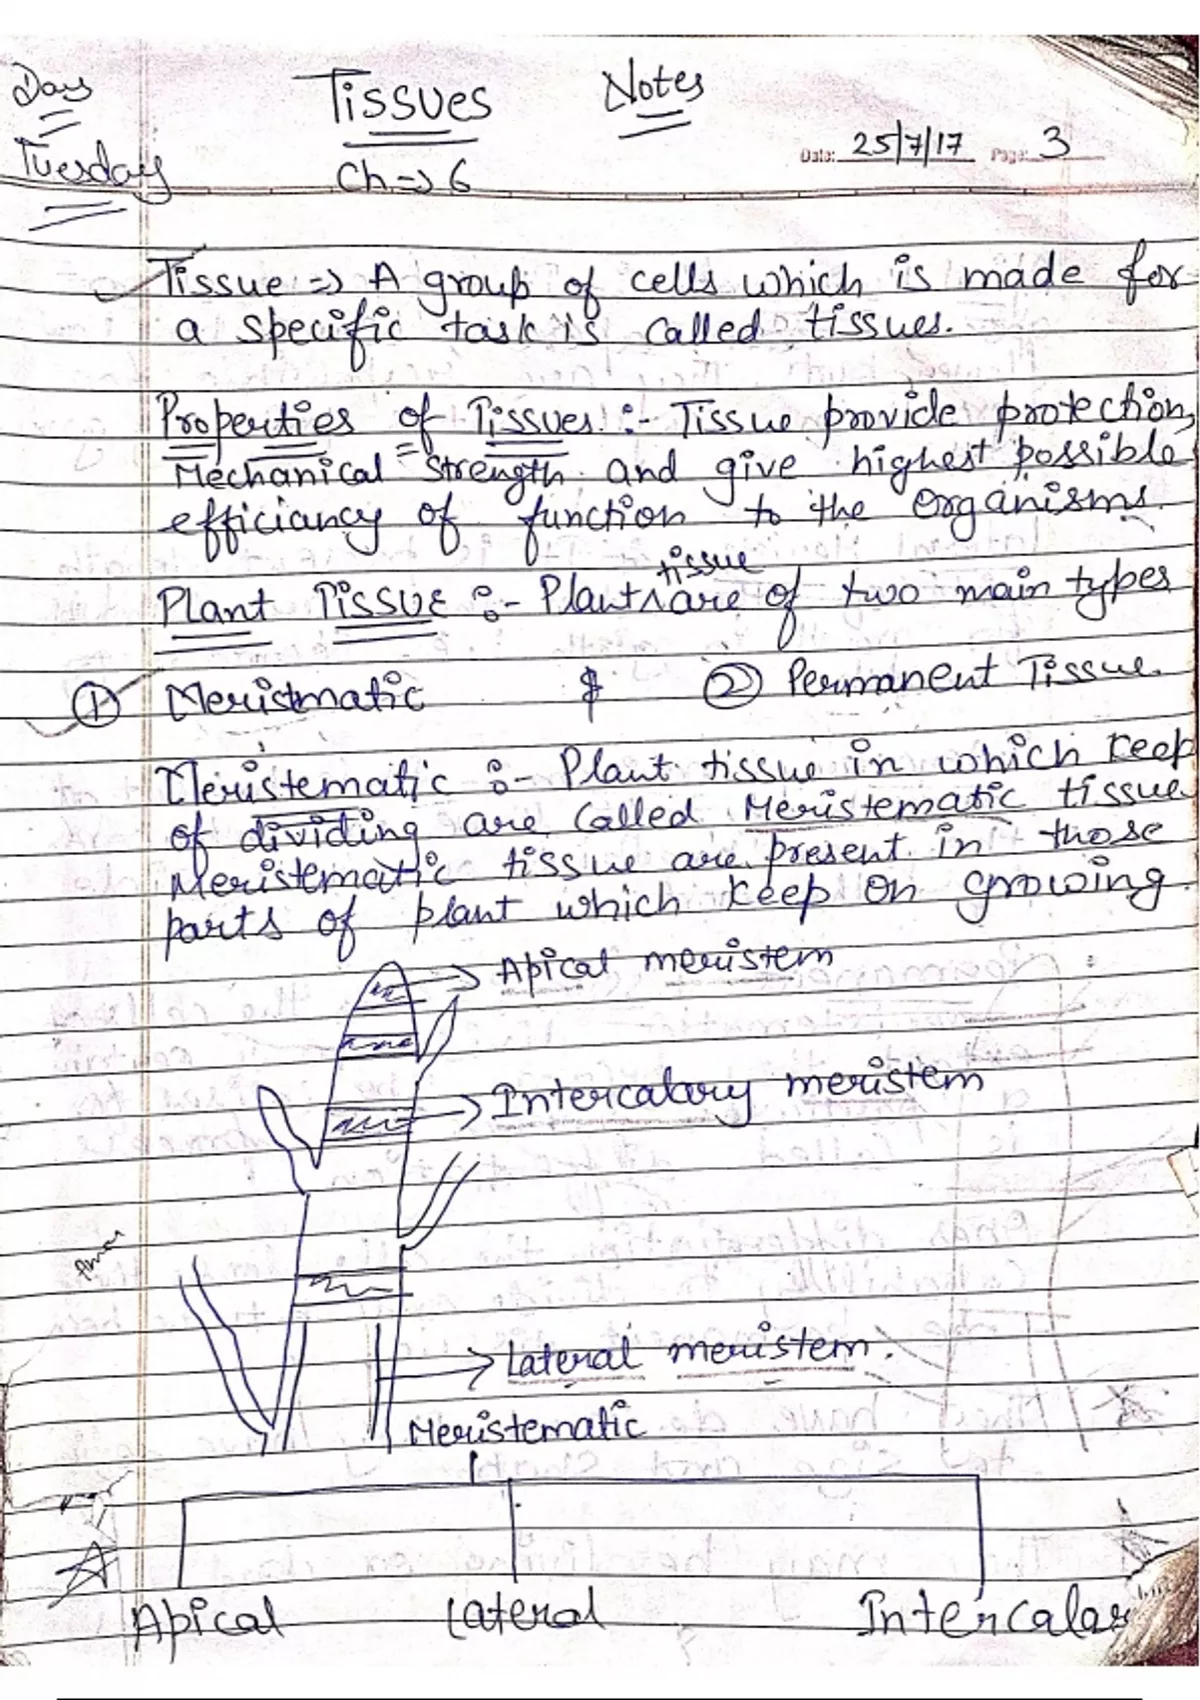 Day
Tuesday
Tissues Notes
Ch → 6
Date: 25/7/17 Page: 3
Tissue => A group of cells which is made for
a specific task is called tissues.
Properties of Tissues :- Tissue provide protection,
Mechanical strength and give highest possible
efficiancy of function to the organisms.
tissue
Plant Tissue :- Plant ^ are of two main types
① Meristmatic & ② Permanent Tissue.
Meristematic :- Plant tissue in which keep
of dividing are called Meristematic tissue
Meristematic tissue are present in those
parts of plant which keep on growing.
→ Apical meristem
→ Intercalary meristem
→ Lateral meristem.
Meristematic
Apical Lateral Intercalar